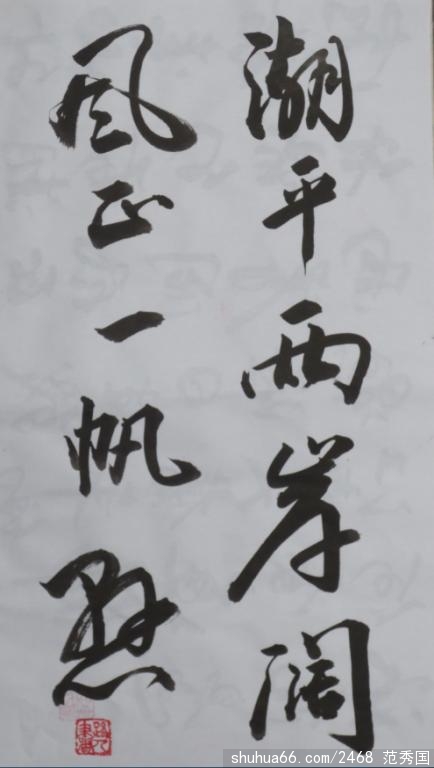 潮平两岸阔
风正一帆悬
shuhua66.com/2468 范秀国